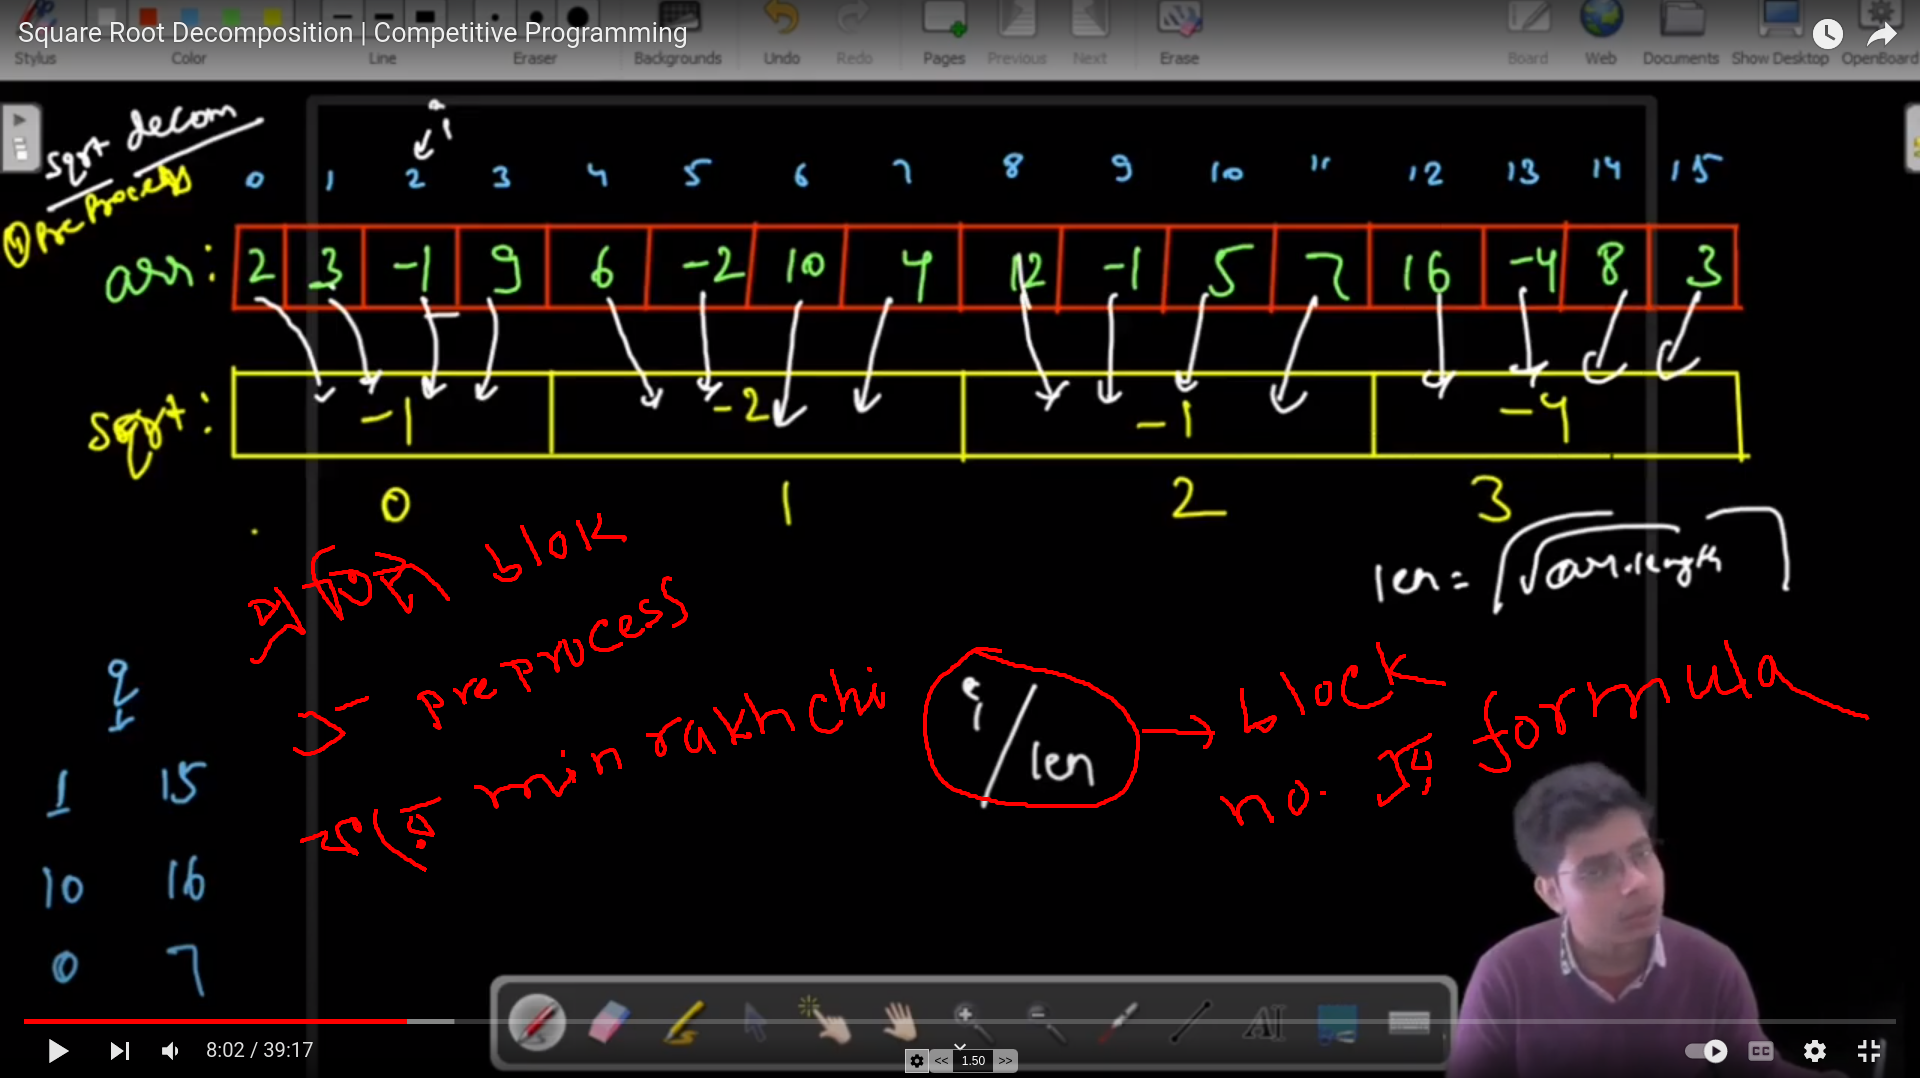 Square Root Decomposition | Competitive Programming
Stylus Color Line Eraser Backgrounds Undo Redo Pages Previous Next Erase Board Web Documents Show Desktop OpenBoard
sqrt decom
i
① PreProcess
0 1 2 3 4 5 6 7 8 9 10 11 12 13 14 15
arr: 2 3 -1 9 6 -2 10 4 12 -1 5 7 16 -4 8 3
sqrt: -1 -2 -1 -4
0 1 2 3
blok
len = √arr.length
preprocess
min rakhchi
i/len → block
no. formula
q
1 15
10 16
0 7
AI
8:02 / 39:17
<< 1.50 >>
CC